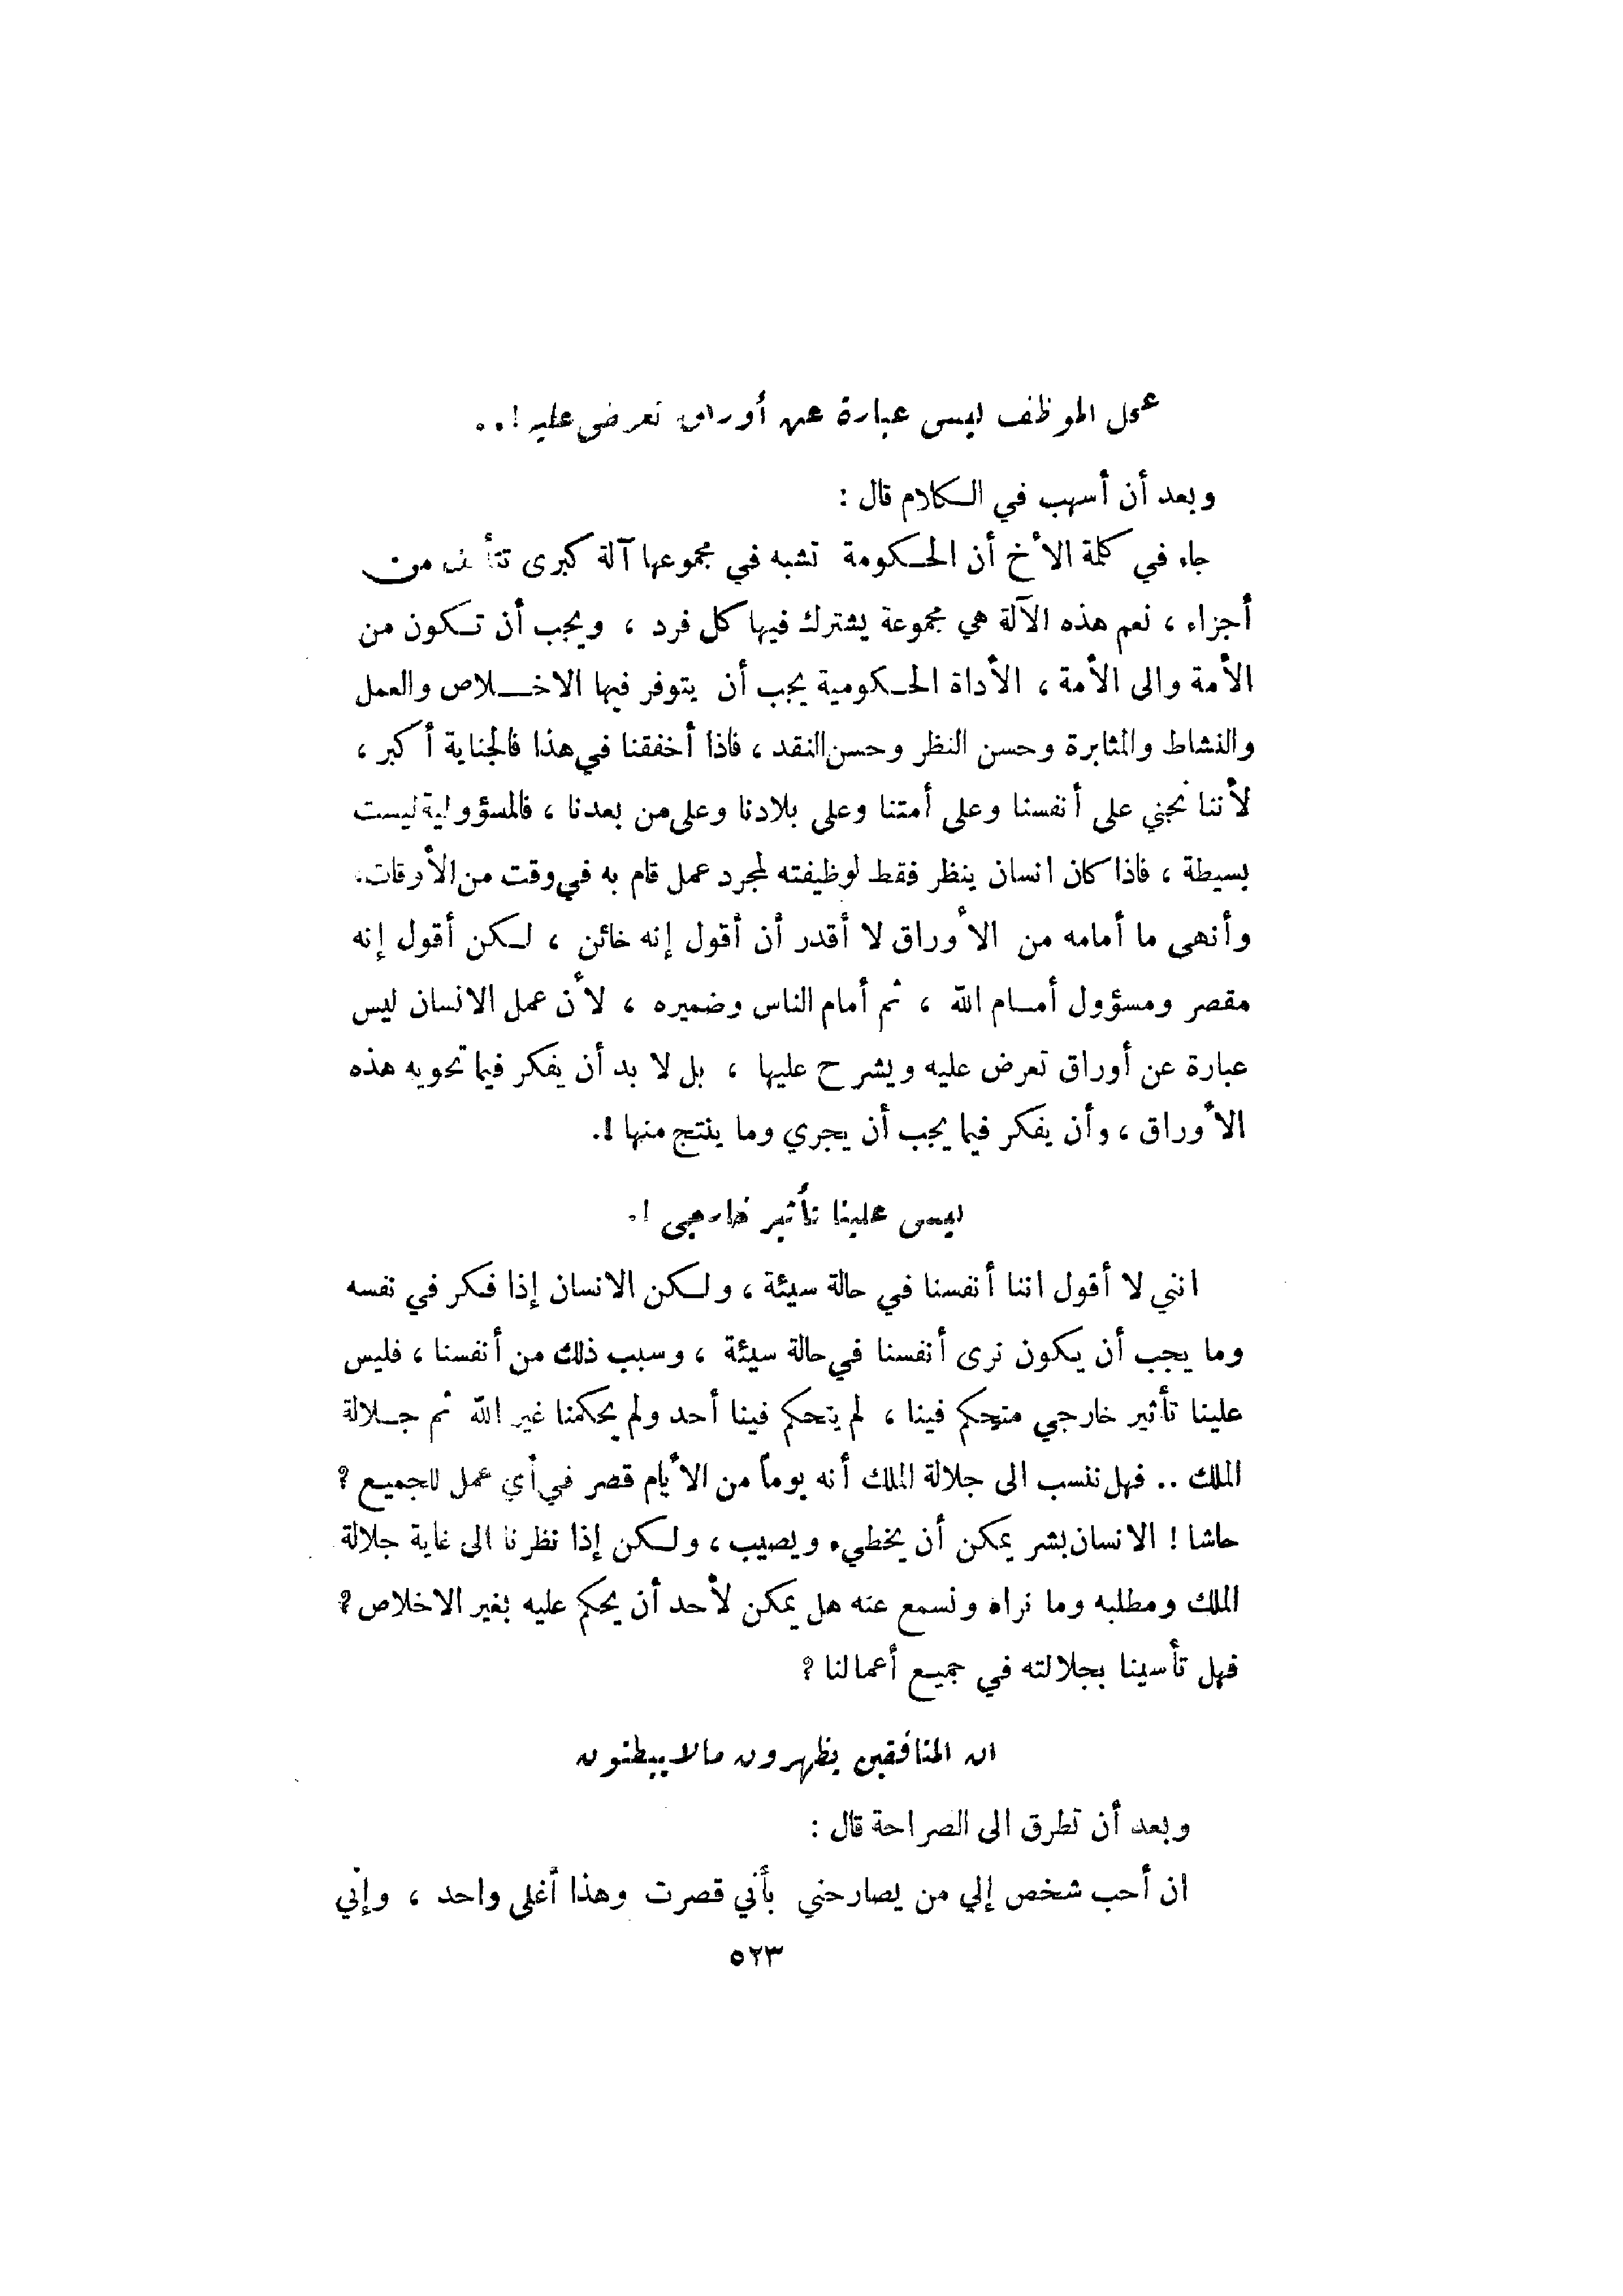 عمل الموظف ليس عبارة عن أوراق تعرض عليه !..
وبعد أن أسهب في الكلام قال :
جاء في كلمة الأخ أن الحكومة تشبه في مجموعها آلة كبرى تتألف من
أجزاء ، نعم هذه الآلة هي مجموعة يشترك فيها كل فرد ، ويجب أن تكون من
الأمة والى الأمة ، الأداة الحكومية يجب أن يتوفر فيها الاخلاص والعمل
والنشاط والمثابرة وحسن النظر وحسن النقد ، فاذا أخفقنا في هذا فالجناية أكبر ،
لأننا نجني على أنفسنا وعلى أمتنا وعلى بلادنا وعلى من بعدنا ، فالمسؤولية ليست
بسيطة ، فاذا كان انسان ينظر فقط لوظيفته لمجرد عمل قام به في وقت من الأوقات،
وأنهى ما أمامه من الأوراق لا أقدر أن أقول إنه خائن ، لكن أقول إنه
مقصر ومسؤول أمام الله ، ثم أمام الناس وضميره ، لأن عمل الانسان ليس
عبارة عن أوراق تعرض عليه ويشرح عليها ، بل لا بد أن يفكر فيما تحويه هذه
الأوراق ، وأن يفكر فيما يجب أن يجري وما ينتج منها !.
ليس علينا تأثير خارجي !.
انني لا أقول اننا أنفسنا في حالة سيئة ، ولكن الانسان إذا فكر في نفسه
وما يجب أن يكون نرى أنفسنا في حالة سيئة ، وسبب ذلك من أنفسنا ، فليس
علينا تأثير خارجي متحكم فينا ، لم يتحكم فينا أحد ولم يحكمنا غير الله ثم جلالة
الملك .. فهل ننسب الى جلالة الملك أنه يوماً من الأيام قصر في أي عمل للجميع ؟
حاشا ! الانسان بشر يمكن أن يخطيء ويصيب ، ولكن إذا نظرنا الى غاية جلالة
الملك ومطلبه وما نراه ونسمع عنه هل يمكن لأحد أن يحكم عليه بغير الاخلاص ؟
فهل تأسينا بجلالته في جميع أعمالنا ؟
ان المنافقين يظهرون مالا يبطنون
وبعد أن تطرق الى الصراحة قال :
ان أحب شخص إلي من يصارحني بأني قصرت وهذا أغلى واحد ، وإني
٥٢٣